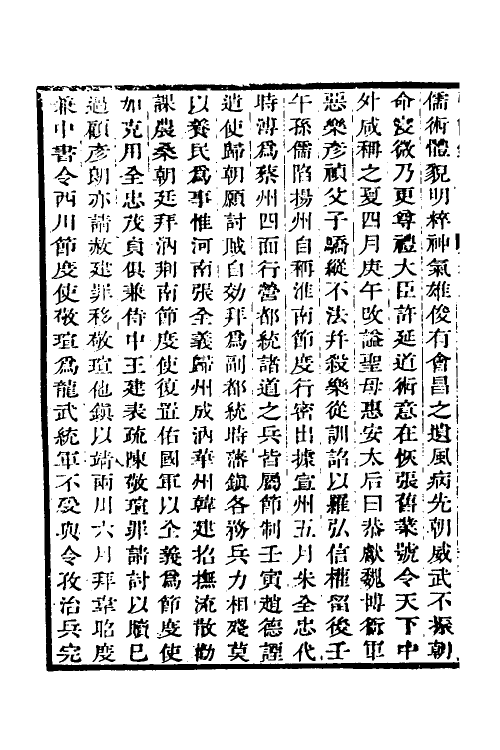 儒術體貌明粹神氣雄俊有會昌之遺風病先朝威武不振朝
命寖微乃更尊禮大臣許延道術意在恢張舊業號令天下中
外咸稱之夏四月庚午改謚聖母惠安太后曰恭獻魏博衙軍
惡樂彥禎父子驕縱不法幷殺樂從訓詔以羅弘信權留後壬
午孫儒陷揚州自稱淮南節度行密出據宣州五月朱全忠代
時溥爲蔡州四面行營都統諸道之兵皆屬節制壬寅趙德諲
遣使歸朝願討賊自効拜爲副都統時藩鎮各務兵力相殘莫
以養民爲事惟河南張全義歸州成汭華州韓建招撫流散勸
課農桑朝廷拜汭荆南節度使復置佑國軍以全義爲節度使
如克用全忠茂貞俱兼侍中王建表疏陳敬瑄罪請討以贖已
過顧彥朗亦請赦建罪移敬瑄他鎮以靖兩川六月拜韋昭度
兼中書令西川節度使敬瑄爲龍武統軍不受與令孜治兵完